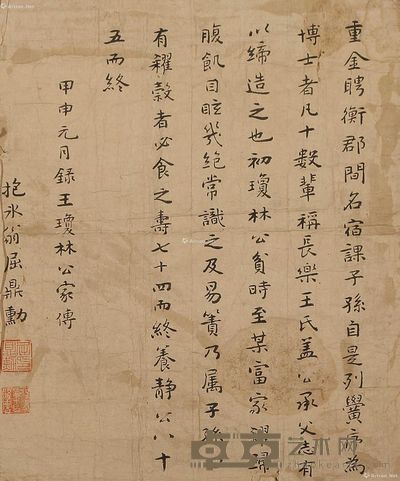 重金聘衡郡間名宿課子孫自是列黌序為
博士者凡十數輩稱長樂王氏蓋公承父志有
以締造之也初瓊林公貧時至某富家糴歸
腹飢目眩幾絕常識之及易簀乃属子孫
有糴穀者必食之壽七十四而終養靜公八十
五而終
甲申元月錄王瓊林公家傳
抱冰翁屈鼎勳
艺术网